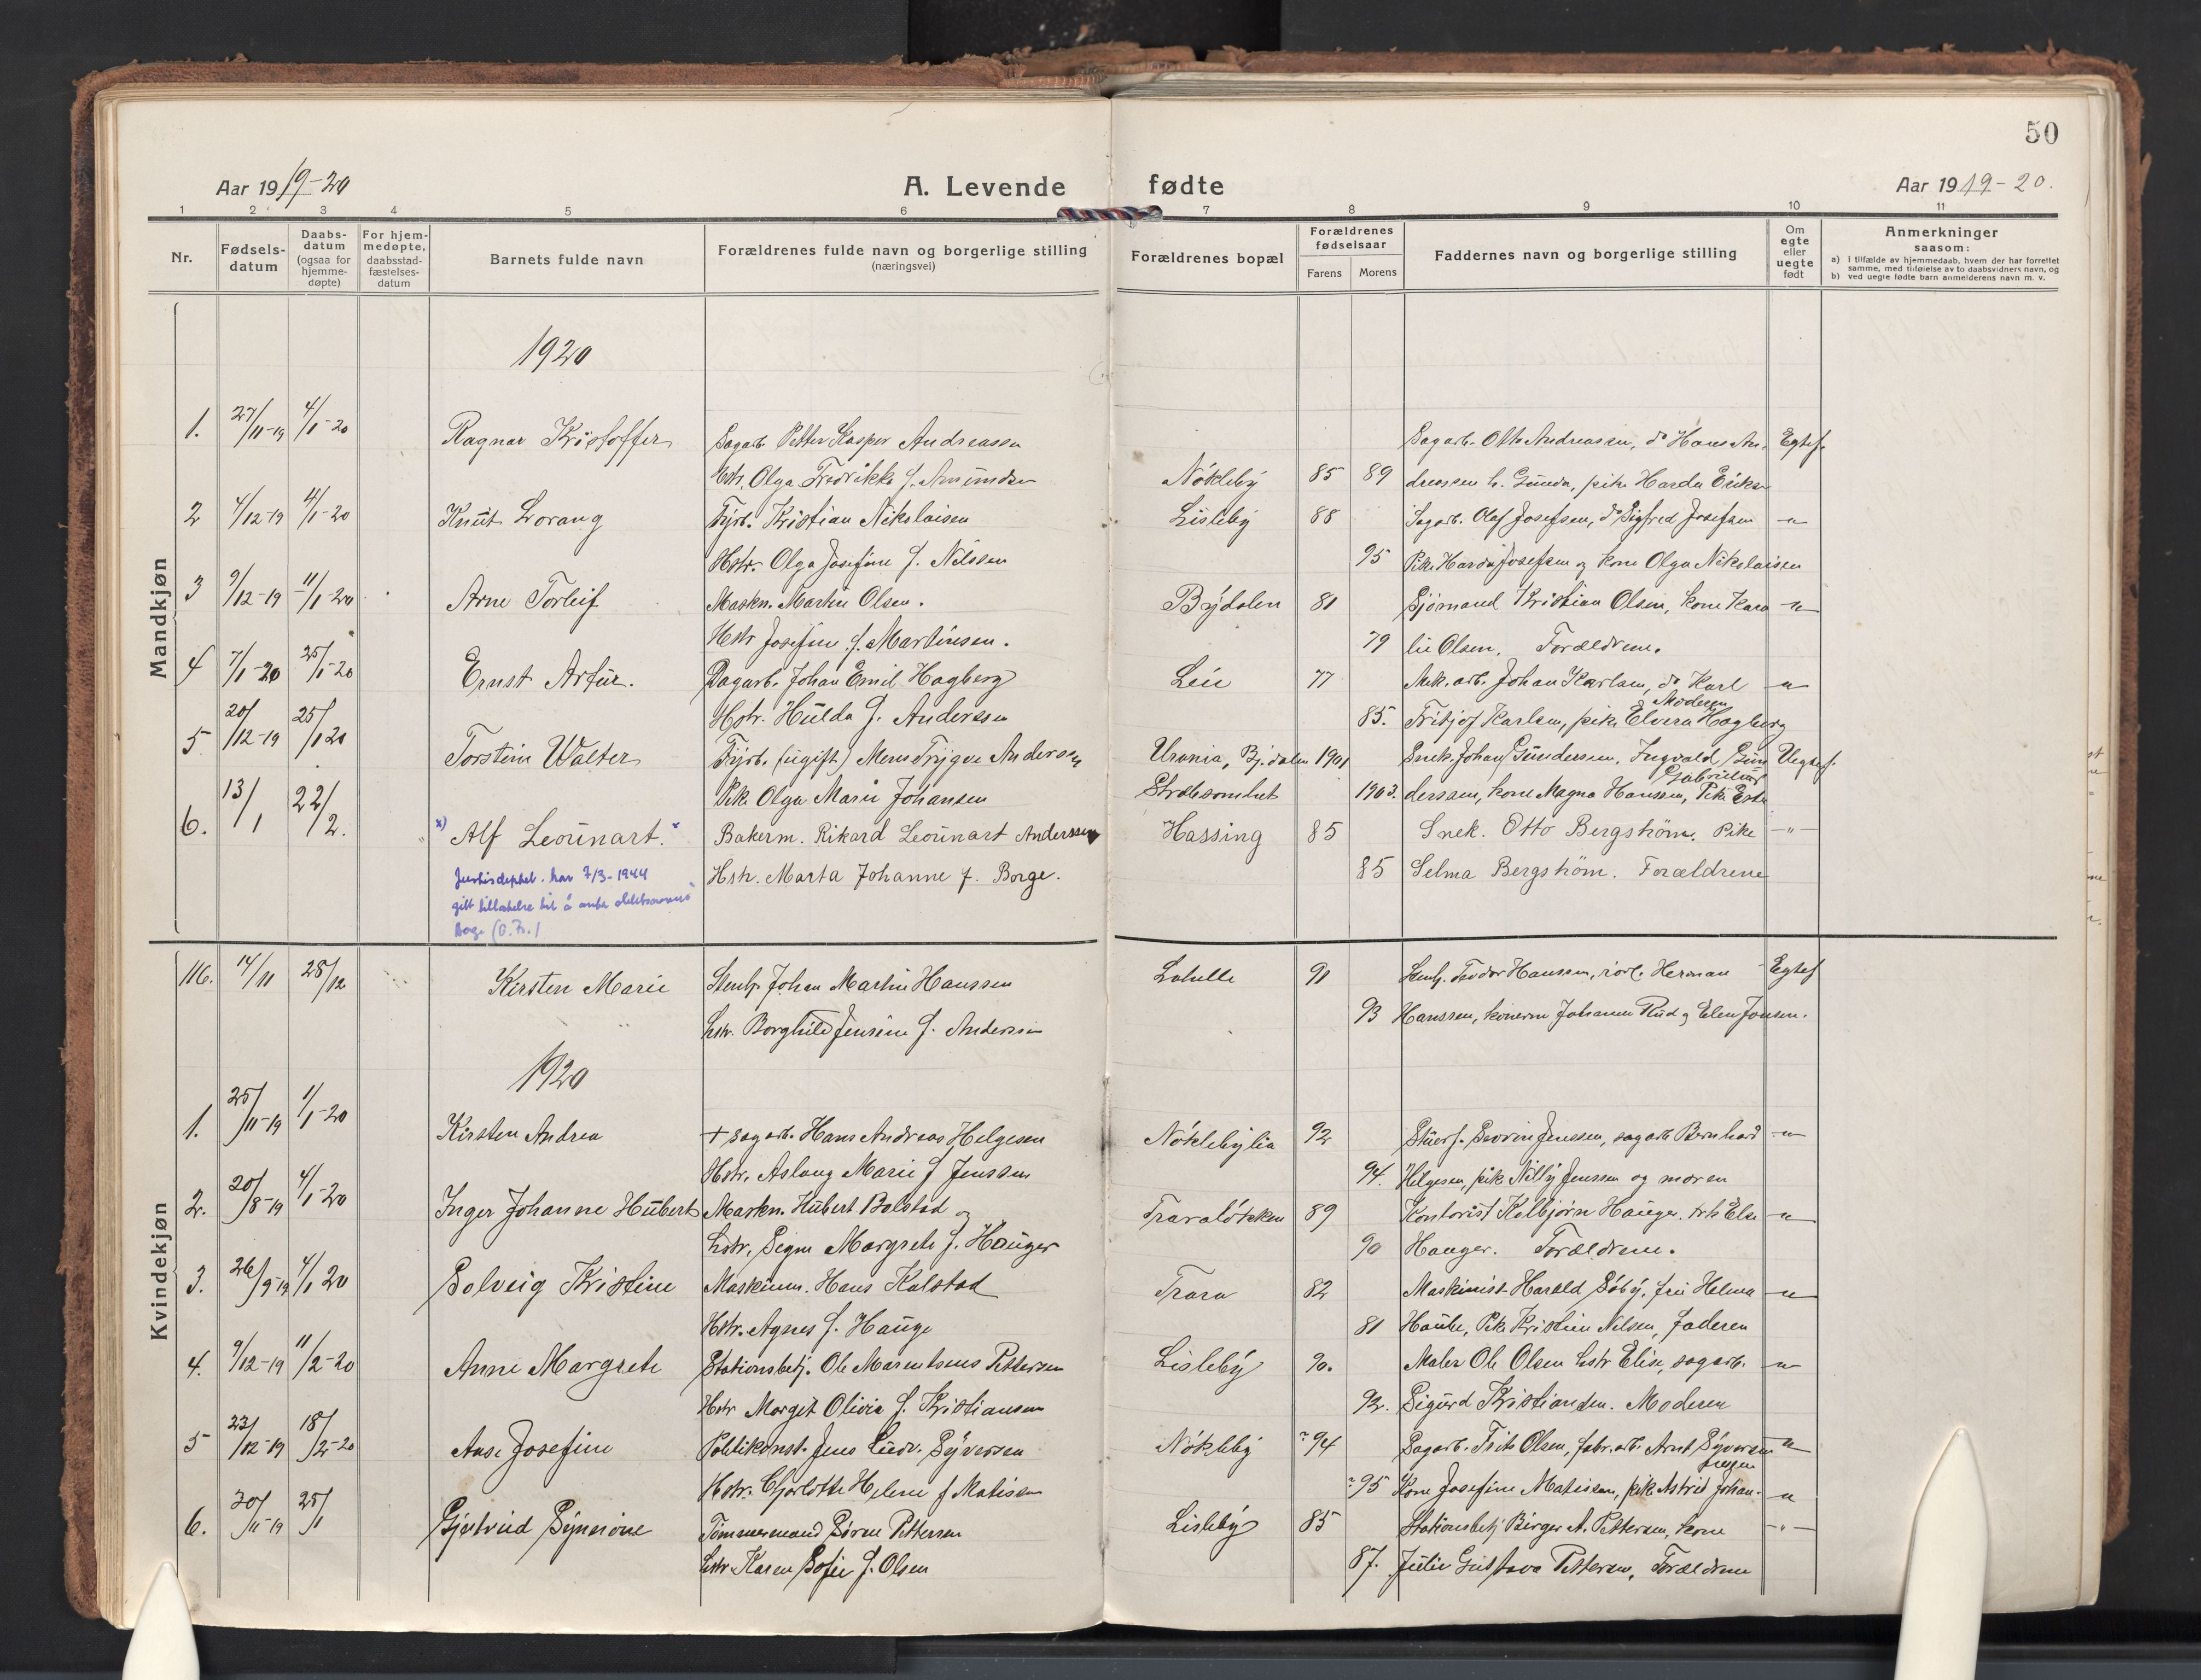 50
Aar 1919-20
A. Levende fødte
Aar 1919-20.
1 2 3 4 5 6 7 8 9 10 11
Nr.
Fødsels-
datum
Daabs-
datum
(ogsaa for
hjemme-
døpte)
For hjem-
medøpte,
daabsstad-
fæstelses-
datum
Barnets fulde navn
Forældrenes fulde navn og borgerlige stilling
(næringsvei)
Forældrenes bopæl
Forældrenes
fødselsaar
Farens Morens
Faddernes navn og borgerlige stilling
Om
egte
eller
uegte
født
Anmerkninger
saasom:
a) i tilfælde av hjemmedaab, hvem der har forrettet
samme, med tilføielse av to daabsvidners navn, og
b) ved uegte fødte barn anmelderens navn m. v.
Mandkjøn
1920
1. 27/11-19 4/1-20 Ragnar Kristoffer Sagarb. Petter Kasper Andreassen Sagarb. Otto Andreassen, do Hans An- Egtef.
Hstr. Olga Fredrikke f. Amundsen Nökleby 85 89 dreassen h. Gunda, pike Harda Eriksen
2 4/12-19 4/1-20 Knut Lorang Fyrb. Kristian Nikolaisen Lisleby 88 Sagarb. Olaf Josefsen, do Sigfred Josefsen -"-
Hstr. Olga Josefine f. Nilssen 95 Pike Harda Josefsen og kone Olga Nikolaisen
3 9/12-19 11/1-20 Arne Torleif Maskn. Martin Olsen. Bydalen 81 Sjømand Kristian Olsen, kone Karo- -"-
Hstr Josefine f. Martinsen. 79 lie Olsen. Forældrene.
4 7/1-20 25/1-20 Ernst Artur. Dagarb. Johan Emil Hagberg Leie 77 Mek. arb. Johan Karlsen, do Karl -"-
Hstr. Hulda f. Anderssen 85. Fritjof Karlsen, pike Elvera Hagberg Moderen
5 20/12-19 25/1 20 Torstein Walter Fyrb. (ugift) Mens Trygve Andersen Urania, Bj.dalen 1901 Snek. Johan Gundersen, Ingvald Gun- Uegtef.
Pike Olga Marie Johansen Stræbsomhet 1903. dersen, kone Magna Hanssen, Pike Ester Gabrielsen
6. 13/1 22/2. x) Alf Leonnart. x Bakerm. Rikard Leonnart Anderssen Hassing 85 Snek. Otto Bergström. Pike -"-
Justisdeptet. har 7/3-1944 Hstr. Marta Johanne f. Borge. 85 Selma Bergström. Forældrene
gitt tillatelse til å anta slektsnavnet
Borge (O.Fr.)
Kvindekjøn
116. 14/11 28/12 Kirsten Marie Stenh. Johan Martin Hanssen Lahelle 91 Stenh. Teodor Hanssen, rørl. Herman Egtef
hstr. Borghild Jensine f. Anderssen 93 Hanssen, konerne Johanne Rud og Elen Jonsen.
1920
1. 25/11-19 1/1-20 Kirsten Andrea + sagarb. Hans Andreas Helgesen Nöklebylia 92 Severin Jenssen, sagarb Bernhard -"-
Hstr. Aslaug Marie f Jenssen 94. Helgesen, pike Nelly Jenssen og moren
2. 20/8-19 4/1-20 Inger Johanne Hubert Maskn. Hubert Bolstad og Traraløkken 89 Kontorist Kolbjørn Hauger. Else -"-
hstr. Signe Margrete f. Hauger 90 Hauger. Forældrene.
3. 26/9-19 4/1 20 Solveig Kristine Maskinm. Hans Kalstad Trara 82 Maskinist Harald Søby, fru Helma -"-
Hstr. Agnes f. Hauge 81 Hauge, Pike Kristine Nilsen, faderen
4. 9/12-19 11/2-20 Anne Margrete Stationsbetj. Ole Marentsens Pettersen Lisleby 90. Maler Ole Olsen hstr Elise, sagarb. -"-
Hstr Margit Olivia f. Kristiansen 92. Sigurd Kristiansen. Moderen
5 23/12-19 18/2-20 Aase Josefine Politikonst. Jens Ludv. Syversen Nökleby 94 Sagarb. Frits Olsen, fabr.arb. Arnt Syversen -"-
Hstr. Charlotte Helene f Matisen 95 Kone Josefine Matissen, pike Astrid Johan- -"-
6. 30/11-19 25/1 Gjertrud Synnöve Tömmermand Sören Pettersen Lisleby 85 Stationsbetj Birger A. Pettersen, kone -"-
hstr. Karen Sofie f. Olsen 87. Julie Gustava Pettersen, Forældrene